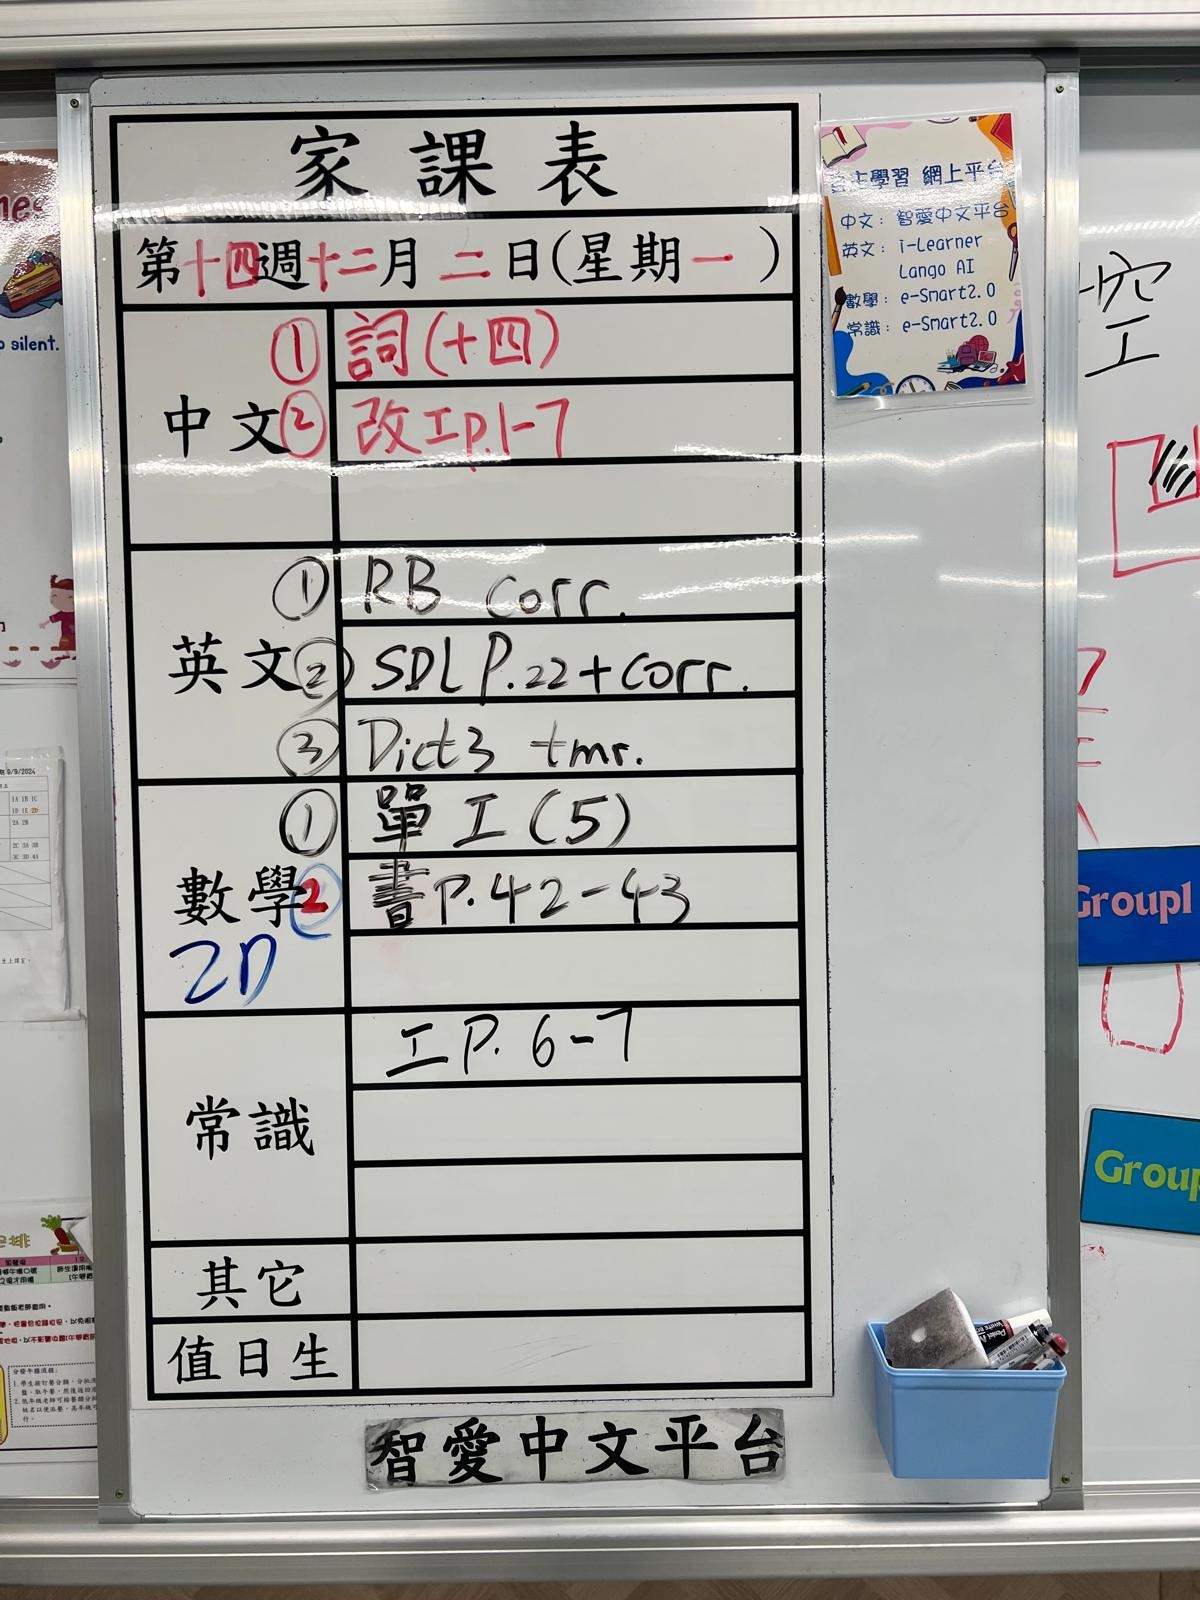 家課表
第十四週十二月二日(星期一)
中文
① 詞(十四)
② 改工P.1-7
英文
① RB corr.
② SDL P.22+corr.
③ Dict3 tmr.
數學
2D
① 單工(5)
② 書P.42-43
常識
工P.6-7
其它
值日生
智愛中文平台
自主學習 網上平台
中文：智愛中文平台
英文：i-Learner
Lango AI
數學：e-Smart2.0
常識：e-Smart2.0
空
工
Group1
Group
silent.
9/9/2024
1A 1B 1C
1D 1E 2D
2A 2B
2C 3A 3B
3C 3D 4A